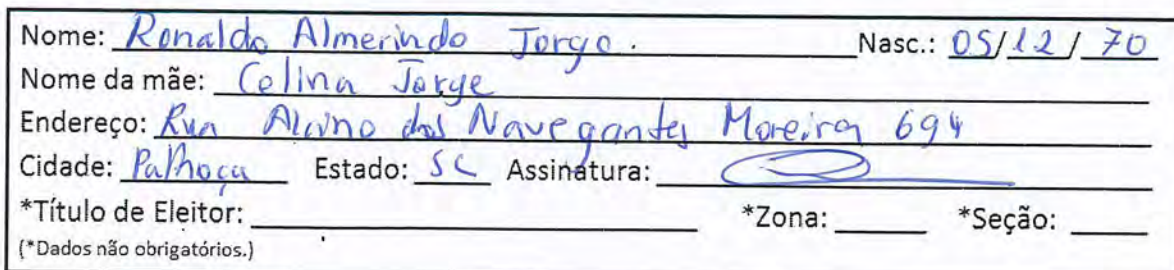 Nome: Ronaldo Almerindo Jorge. Nasc.: 05/12/70
Nome da mãe: Celina Jorge
Endereço: Rua Alcino dos Navegantes Moreira 694
Cidade: Palhoça Estado: SC Assinatura:
*Título de Eleitor: *Zona: *Seção:
(*Dados não obrigatórios.)